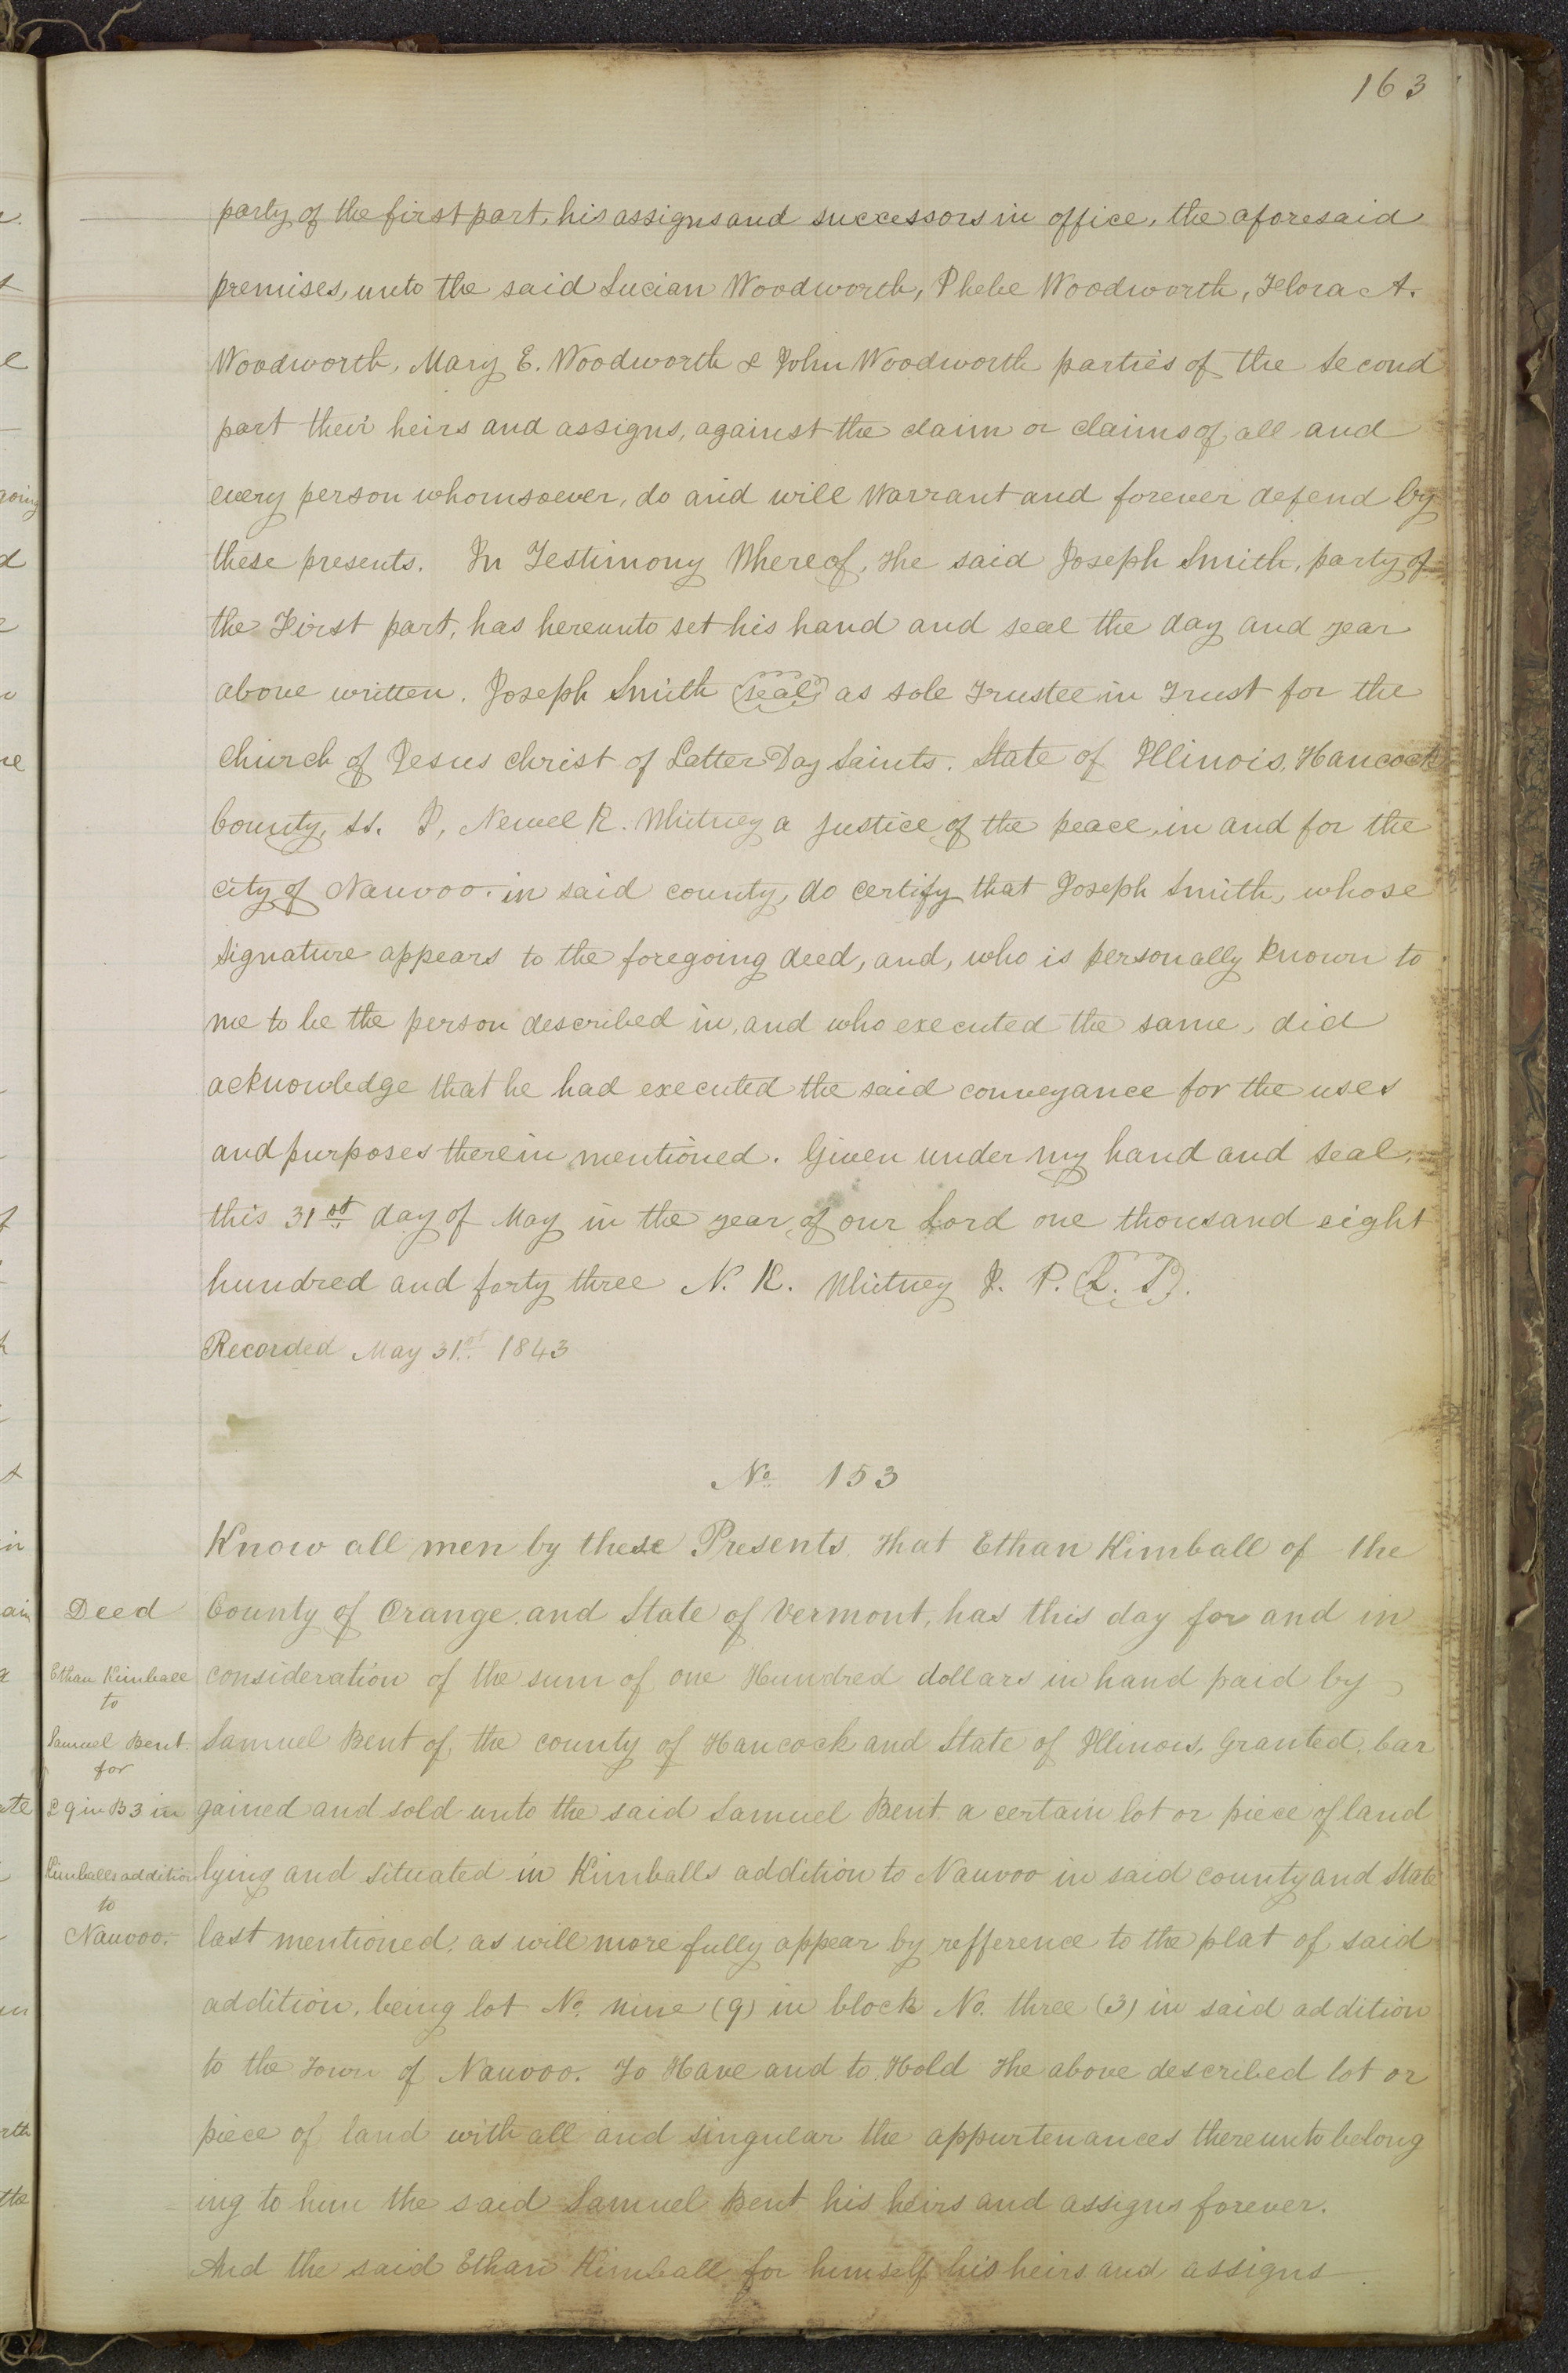 163
party of the first part, his assigns and successors in office, the aforesaid
premises, unto the said Lucian Woodworth, Phebe Woodworth, Flora A.
Woodworth, Mary E. Woodworth & John Woodworth parties of the second
part their heirs and assigns, against the claim or claims of all and
every person whomsoever, do and will Warrant and forever defend by
these presents. In Testimony Whereof, the said Joseph Smith, party of
the First part, has hereunto set his hand and seal the day and year
above written. Joseph Smith (seal) as sole Trustee in Trust for the
Church of Jesus Christ of Latter Day Saints. State of Illinois, Hancock
County, ss. I, Newel K. Whitney a Justice of the peace, in and for the
city of Nauvoo. in said county, do certify that Joseph Smith, whose
signature appears to the foregoing deed, and, who is personally known to
me to be the person described in, and who executed the same, did
acknowledge that he had executed the said conveyance for the uses
and purposes therein mentioned. Given under my hand and seal,
this 31st day of May in the year of our Lord one thousand eight
hundred and forty three N. K. Whitney J. P. (L. S).
Recorded May 31st. 1843
No. 153
Know all men by these Presents, that Ethan Kimball of the
Deed
County of Orange, and State of Vermont, has this day for and in
Ethan Kimball
consideration of the sum of one Hundred dollars in hand paid by
to
Samuel Bent
Samuel Bent of, the county of Hancock and State of Illinois, Granted, bar
for
L 9 in B 3 in
gained and sold unto the said Samuel Bent a certain lot or piece of land
Kimballs addition
lying and situated in Kimballs addition to Nauvoo in said county and State
to
Nauvoo.
last mentioned, as will more fully appear by refference to the plat of said
addition, being lot No. nine (9) in block No. three (3) in said addition
to the Town of Nauvoo. To Have and to Hold the above described lot or
piece of land with all and singular the appurtenances thereunto belong
ing to him the said Samuel Bent his heirs and assigns forever.
And the said Ethan Kimball for himself his heirs and assigns